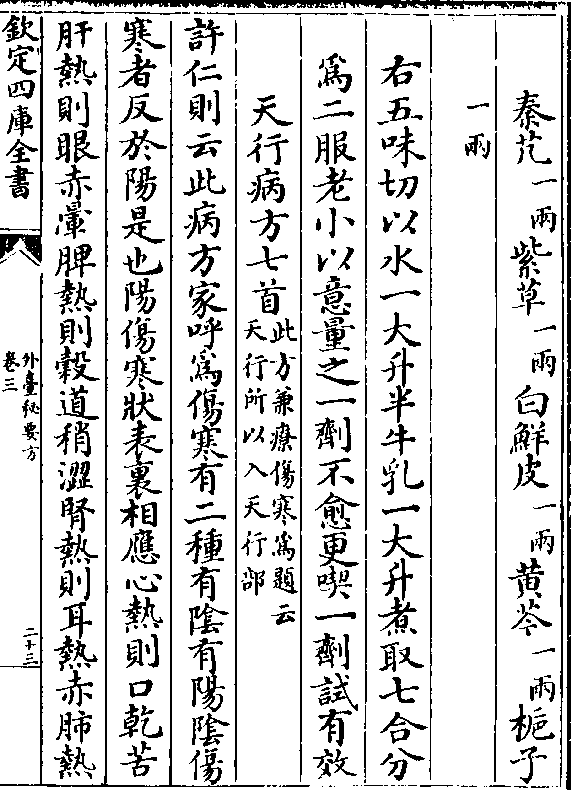 秦艽一兩紫草一兩白鮮皮一兩黄芩一兩梔子
一兩
右五味切以水一大升半牛乳一大升煮取七合分
為二服老小以意量之一劑不愈更喫一劑試有效
天行病方七首此方兼療傷寒為題云
天行所以入天行部
許仁則云此病方家呼為傷寒有二種有陰有陽陰傷
寒者反於陽是也陽傷寒狀表裏相應心熱則口乾苦
肝熱則眼赤暈脾熱則穀道稍澀腎熱則耳熱赤肺熱
欽定四庫全書
外臺秘要方
卷三
二十三